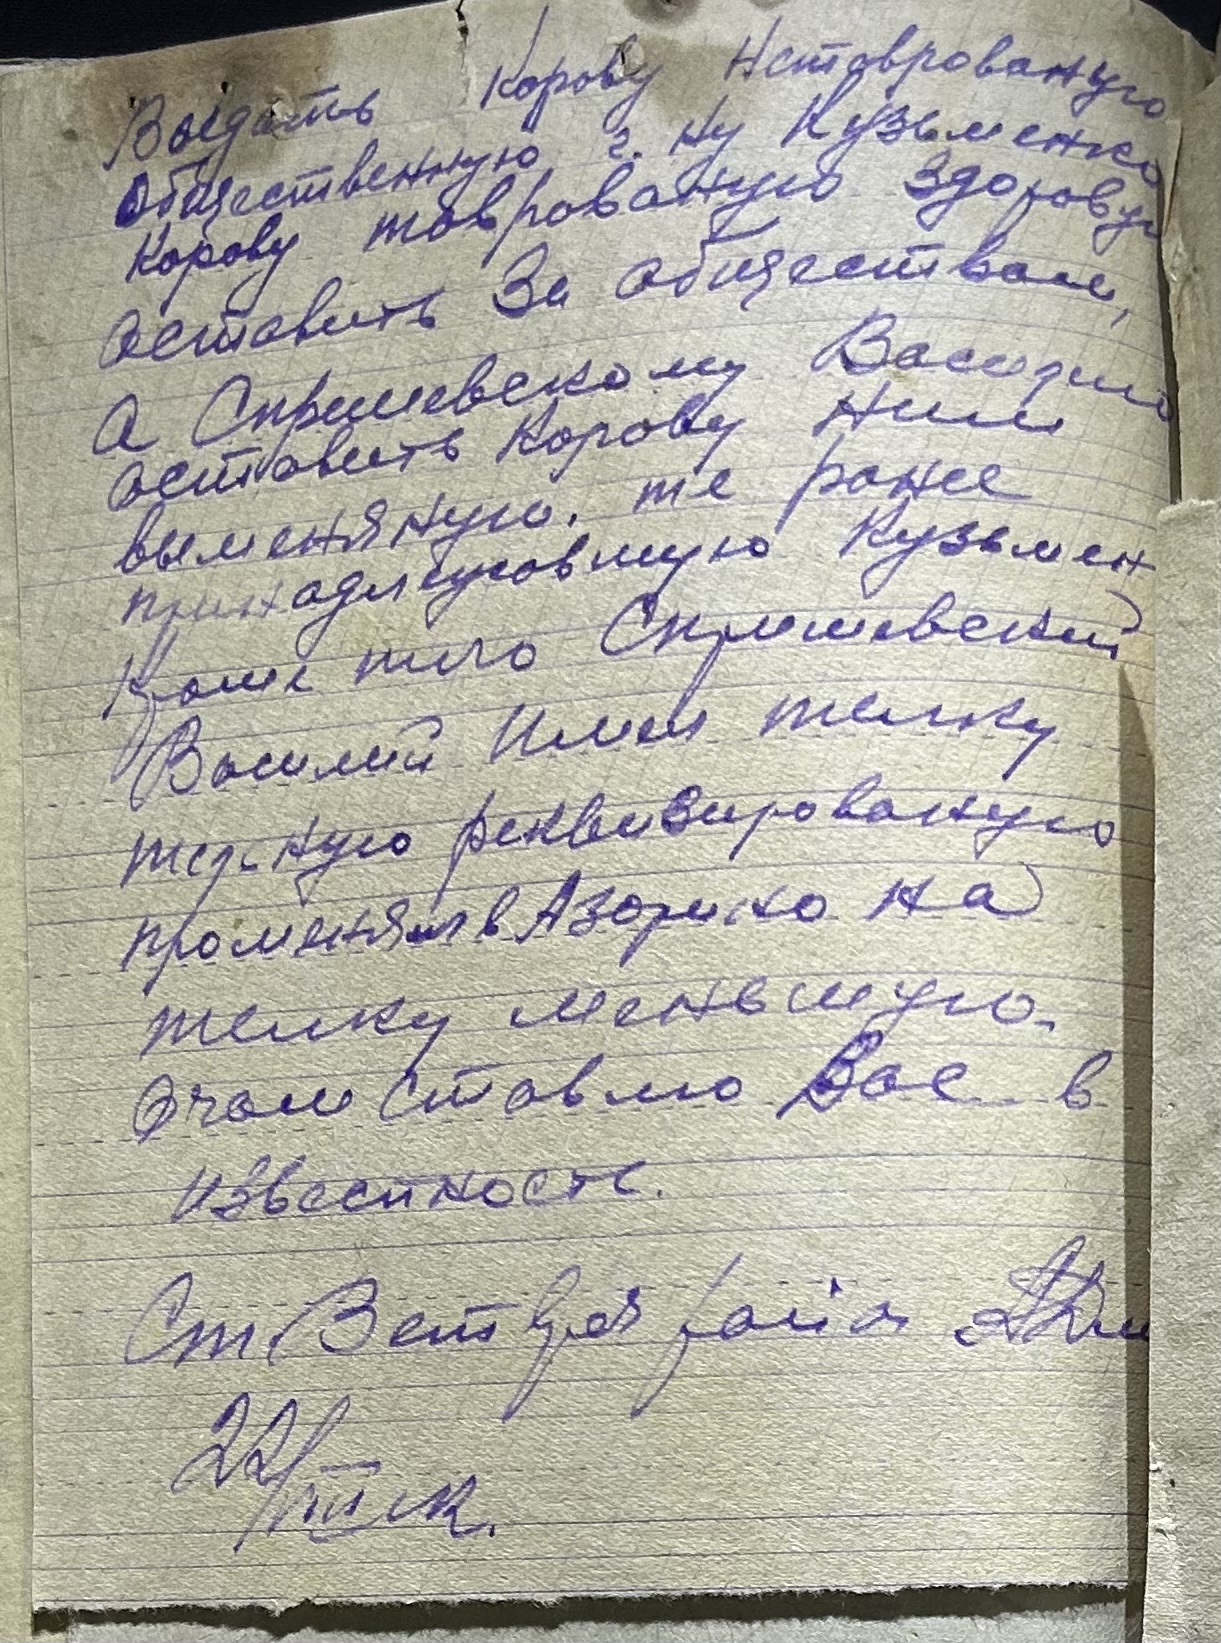 Выдать Корову Нетаврованую
Общественную г. ну Кузьменко
Корову таврованую Здоровую
оставить За обществом,
а Спришевскому Василию
оставить Корову Ним
выменяную. те ранее
принадлежовшую Кузьмен
Кроме того Спришевский
Василий Имея телку
тельную реквизированую
променял в Азорино на
телку меньшую.
Очем Ставлю Вас в
известность.
Ст Вет райа
22/